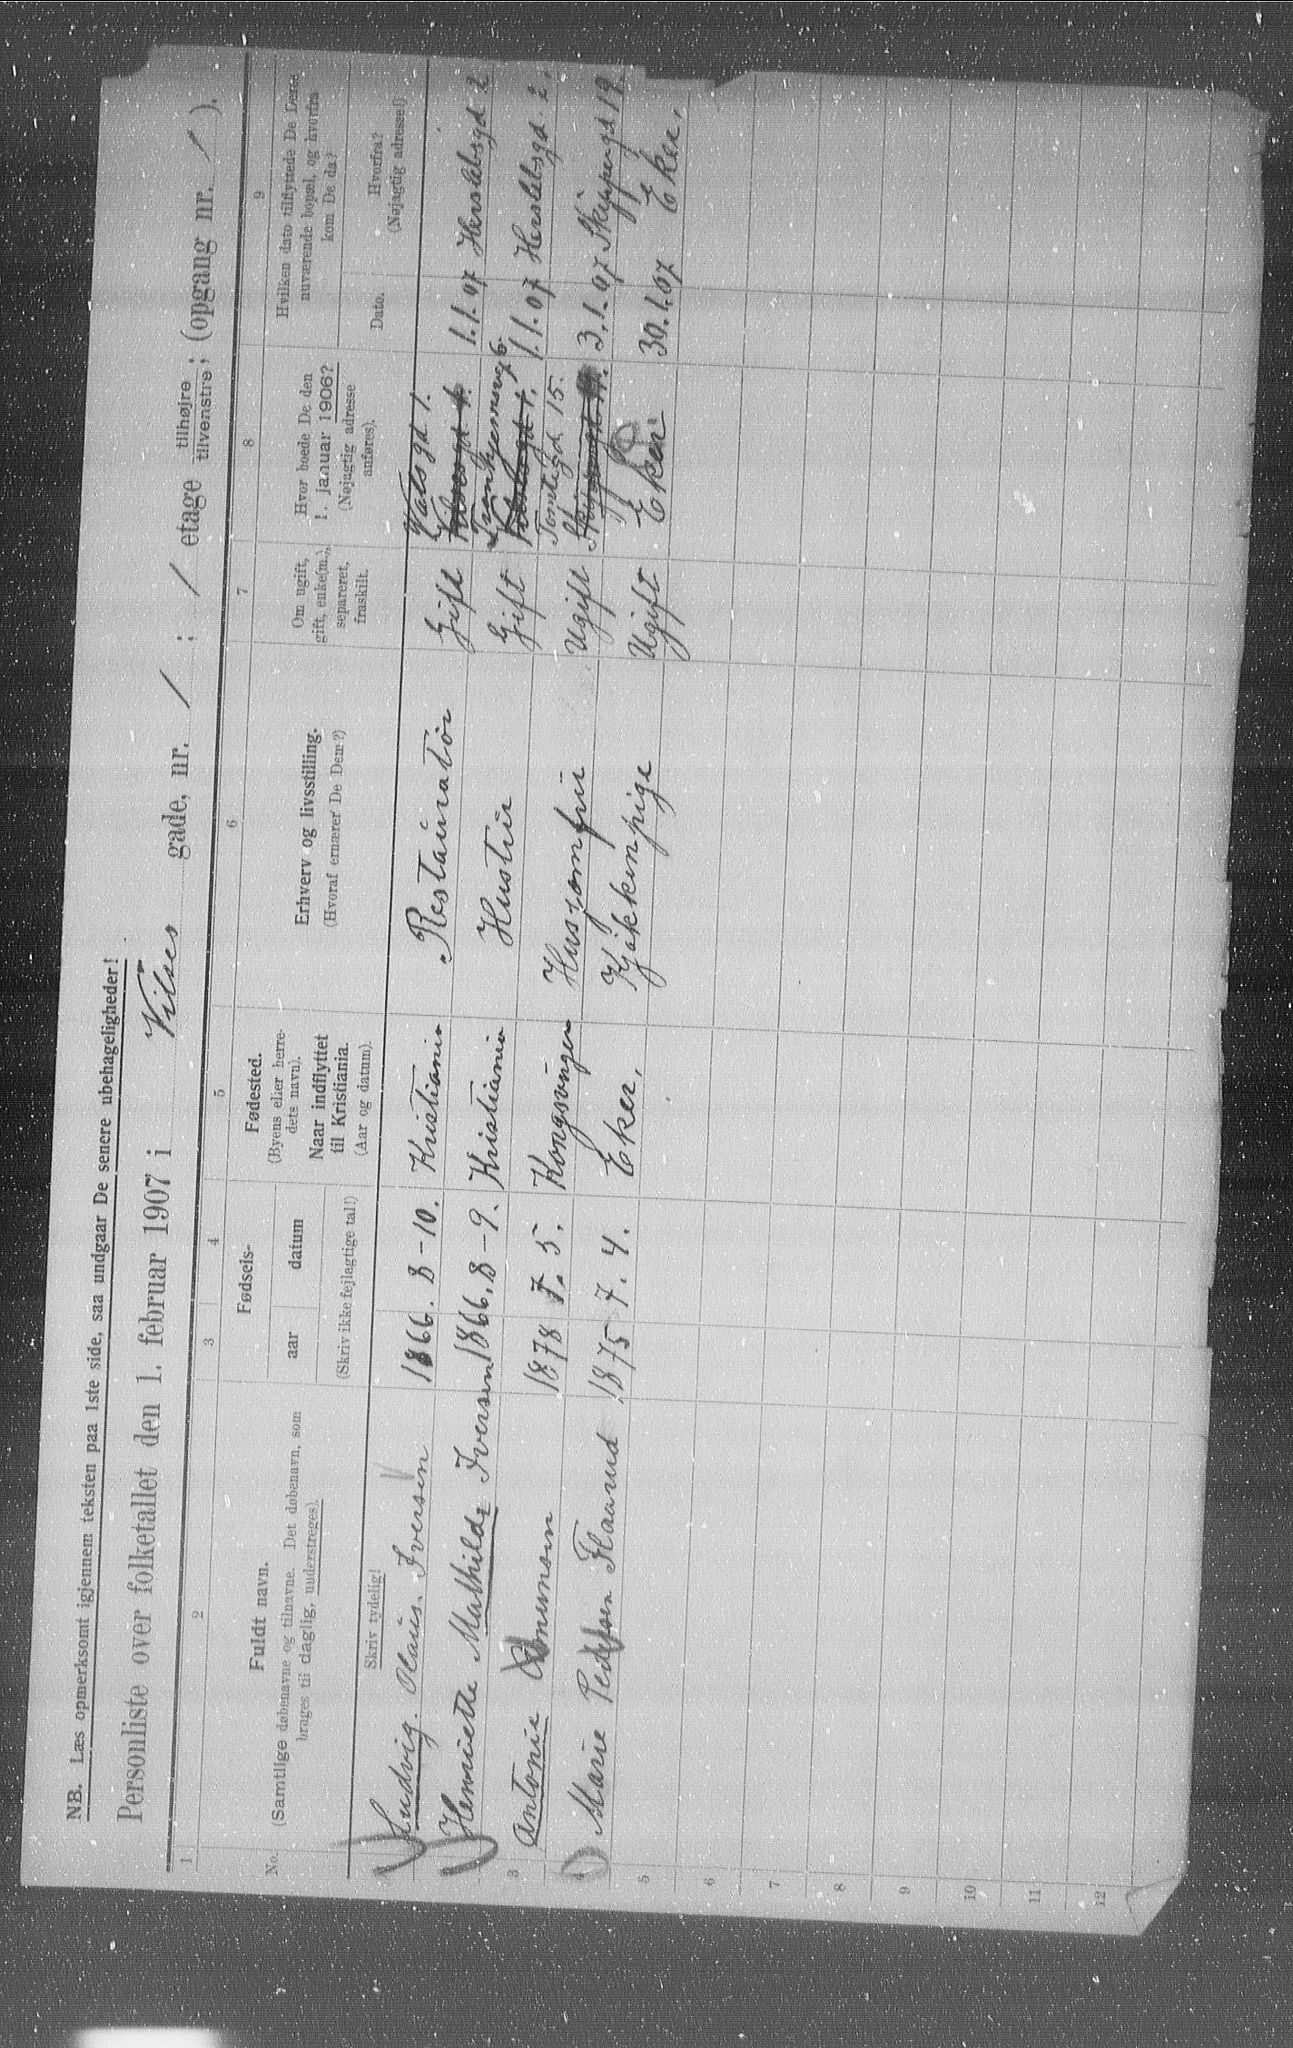 NB. Læs opmerksomt igjennem teksten paa 1ste side, saa undgaar De senere ubehageligheder!
Personliste over folketallet den 1. februar 1907 i Vilses gade, nr. 1 ; 1 etage tilhøjre tilvenstre; (opgang nr. / ).
1 2 3 4 5 6 7 8 9
No. Fuldt navn. (Samtlige døbenavne og tilnavne. Det døbenavn, som bruges til daglig, understreges). Skriv tydelig!
Fødsels- aar datum (Skriv ikke fejlagtige tal!)
Fødested. (Byens eller herredets navn). Naar indflyttet til Kristiania. (Aar og datum).
Erhverv og livsstilling. (Hvoraf ernærer De Dem?)
Om ugift, gift, enke(m.), separeret, fraskilt.
Hvor boede De den 1. januar 1906? (Nøjagtig adresse anføres).
Hvilken dato tilflyttede De Deres nuværende bopæl, og hvorfra kom De da?
Dato. Hvorfra? (Nøjagtig adresse!)
Ludvig. Olaus. Iversen 1866. 8-10. Kristiania Restauratør Gift 1.1.07 Herslebsgd 2
Henriette Mathilde Iversen 1866. 8-9. Kristiania Hustru Gift 1.1.07 Herslebsgd. 2.
3 Antonie 1878 7. 5. Kongsvinger Husjomfru Ugift Tomtegd 15. 3.1.07 Skippergd 19.
Marie Pedersen Flaarud 1875 7. 4. Eker. Kjøkkenpige Ugift Eker. 30.1.07 Eker.
5
6
7
8
9
10
11
12